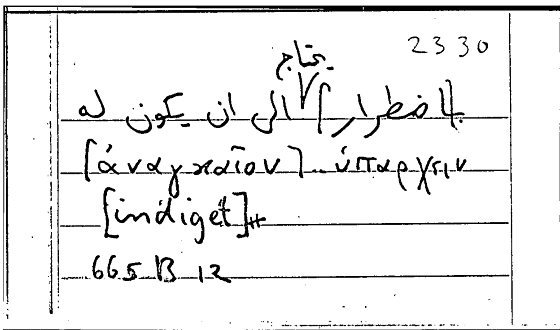 2330
يحتاج
باضطرار] الى ان يكون له
[ἀναγκαῖον]..ὑπάρχειν
[indiget]#
665 B 12